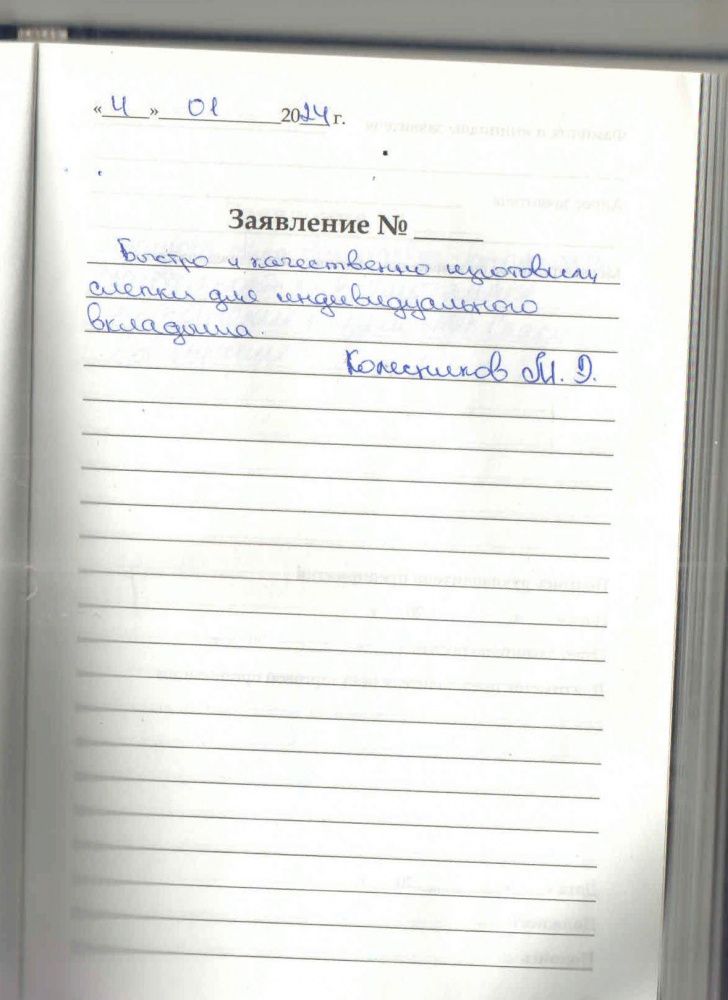 «4» 01 2024 г.
Заявление № ____
Быстро и качественно изготовили
слепки для индивидуального
вкладыша.
Колесников М. Д.